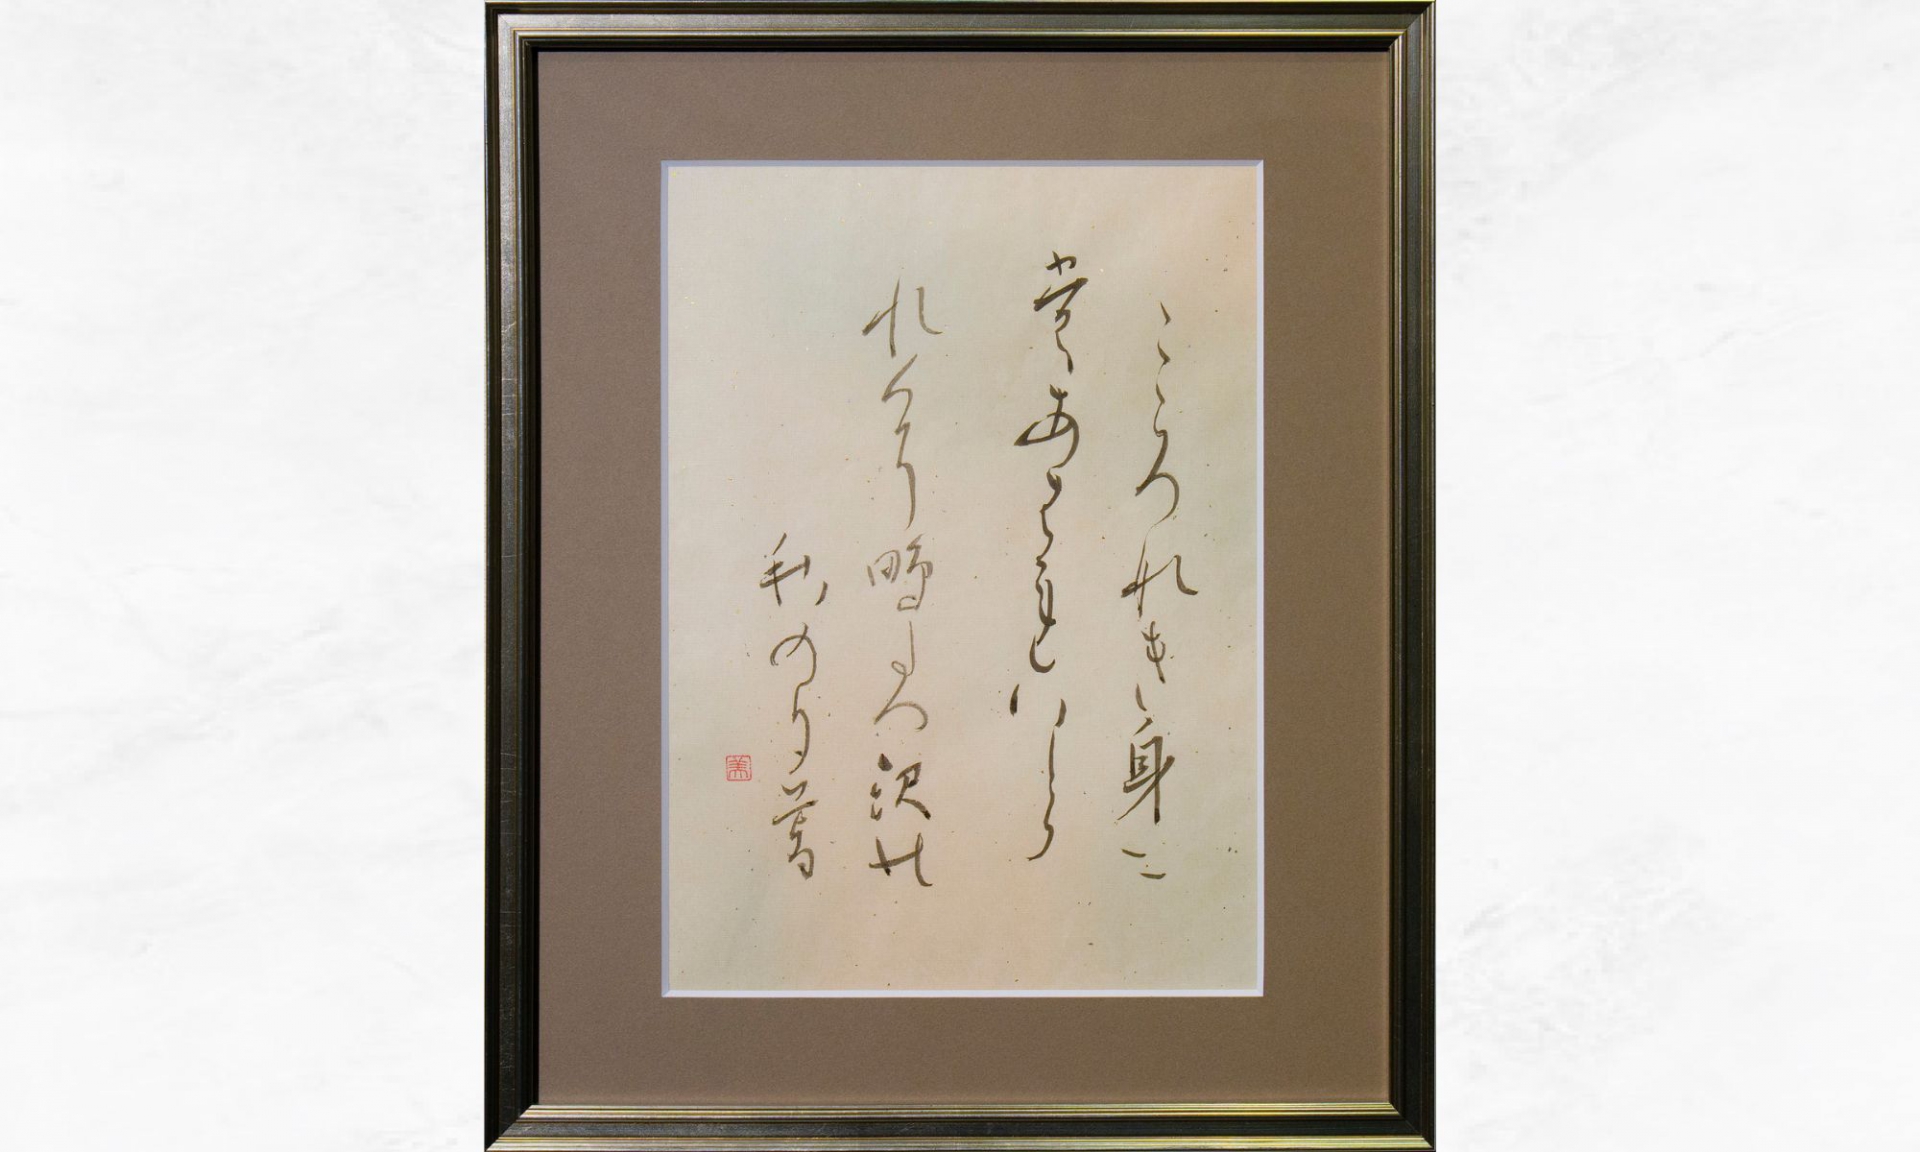 こころなき身に
もあはれはしら
れけり鴫たつ沢の
秋の夕暮
美